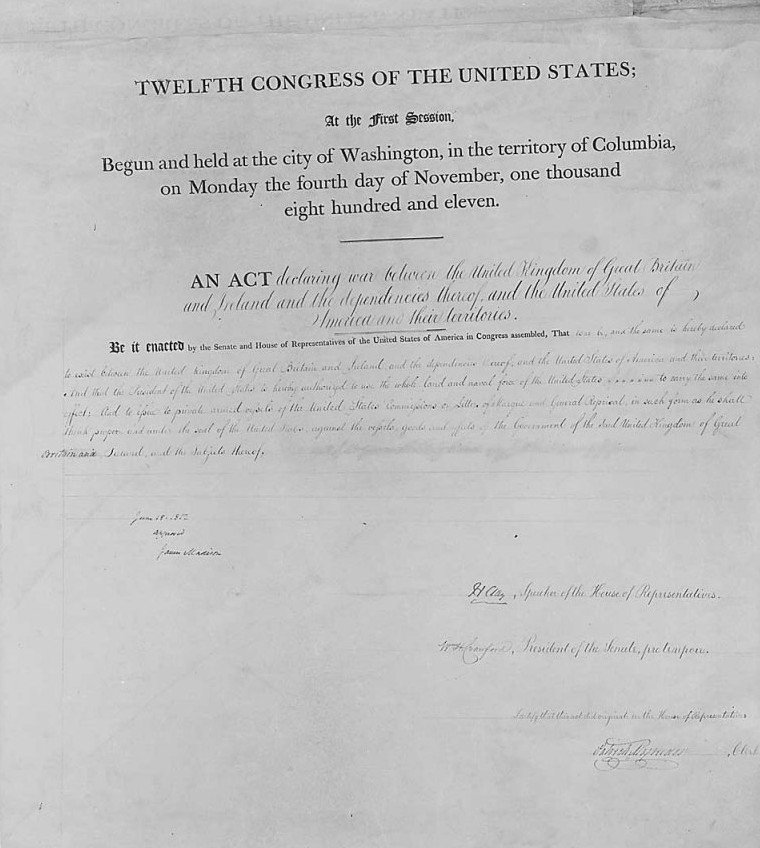 TWELFTH CONGRESS OF THE UNITED STATES;
At the First Session,
Begun and held at the city of Washington, in the territory of Columbia,
on Monday the fourth day of November, one thousand
eight hundred and eleven.
AN ACT declaring war between the United Kingdom of Great Britain
and Ireland and the dependencies thereof, and the United States of
America and their territories.
Be it enacted by the Senate and House of Representatives of the United States of America in Congress assembled, That war be, and the same is hereby declared
to exist between the United Kingdom of Great Britain and Ireland, and the dependencies thereof, and the United States of America and their territories:
And that the President of the United States is hereby authorized to use the whole land and naval force of the United States to carry the same into
effect; And to issue to private armed vessels of the United States Commissions or Letters of Marque and General Reprisal, in such form as he shall
think proper, and under the seal of the United States, against the vessels, goods and effects of the Government of the said United Kingdom of Great
Britain and Ireland, and the Subjects thereof.
June 18. 1812
Approved
James Madison
H Clay, Speaker of the House of Representatives.
Wm H Crawford, President of the Senate, pro tempore.
I certify that this act did originate in the House of Representatives
Clerk